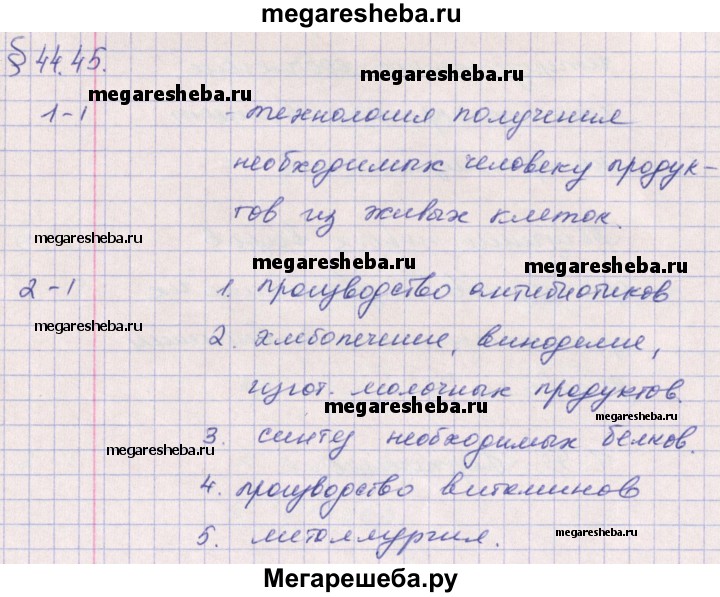 megaresheba.ru
§ 44.45.
megaresheba.ru
megaresheba.ru
1-1 - технология получения
необходимых человеку продук-
тов из живых клеток.
megaresheba.ru
megaresheba.ru
megaresheba.ru
2-1 1. производство антибиотиков
megaresheba.ru
2. хлебопечение, виноделие,
изгот. молочных продуктов.
megaresheba.ru
megaresheba.ru
3. синтез необходимых белков.
megaresheba.ru
4. производство витаминов
5. металлургия.
megaresheba.ru
Мегарешеба.ру